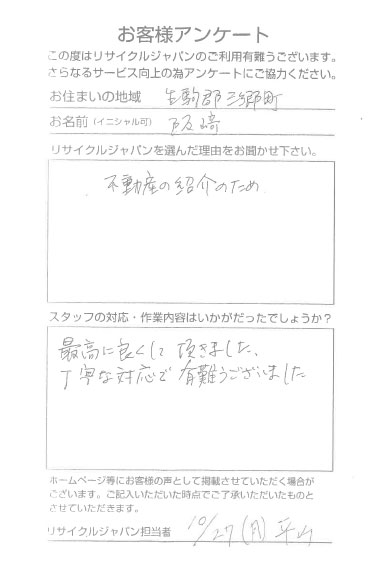 お客様アンケート
この度はリサイクルジャパンのご利用有難うございます。
さらなるサービス向上の為アンケートにご協力ください。
お住まいの地域 生駒郡三郷町
お名前(イニシャル可) 阪﨑
リサイクルジャパンを選んだ理由をお聞かせ下さい。
不動産の紹介のため
スタッフの対応・作業内容はいかがだったでしょうか?
最高に良くして頂きました、
丁寧な対応で有難うございました
ホームページ等にお客様の声として掲載させていただく場合が
ございます。ご記入いただいた時点でご了承いただいたものと
させていただきます。
リサイクルジャパン担当者 10/27(月)平山